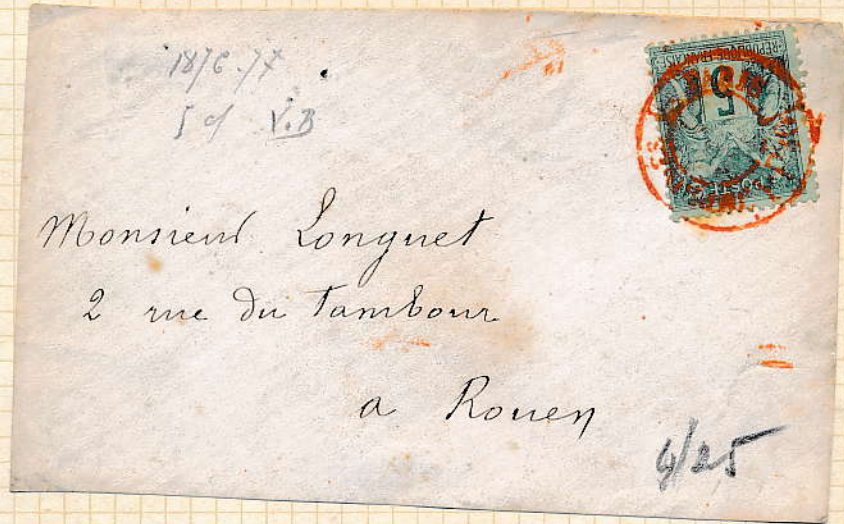 1876-77
5 c/ V.B
RÉPUBLIQUE FRANÇAISE
5
POSTE
Monsieur Longuet
2 rue du Tambour
a Rouen
4/25